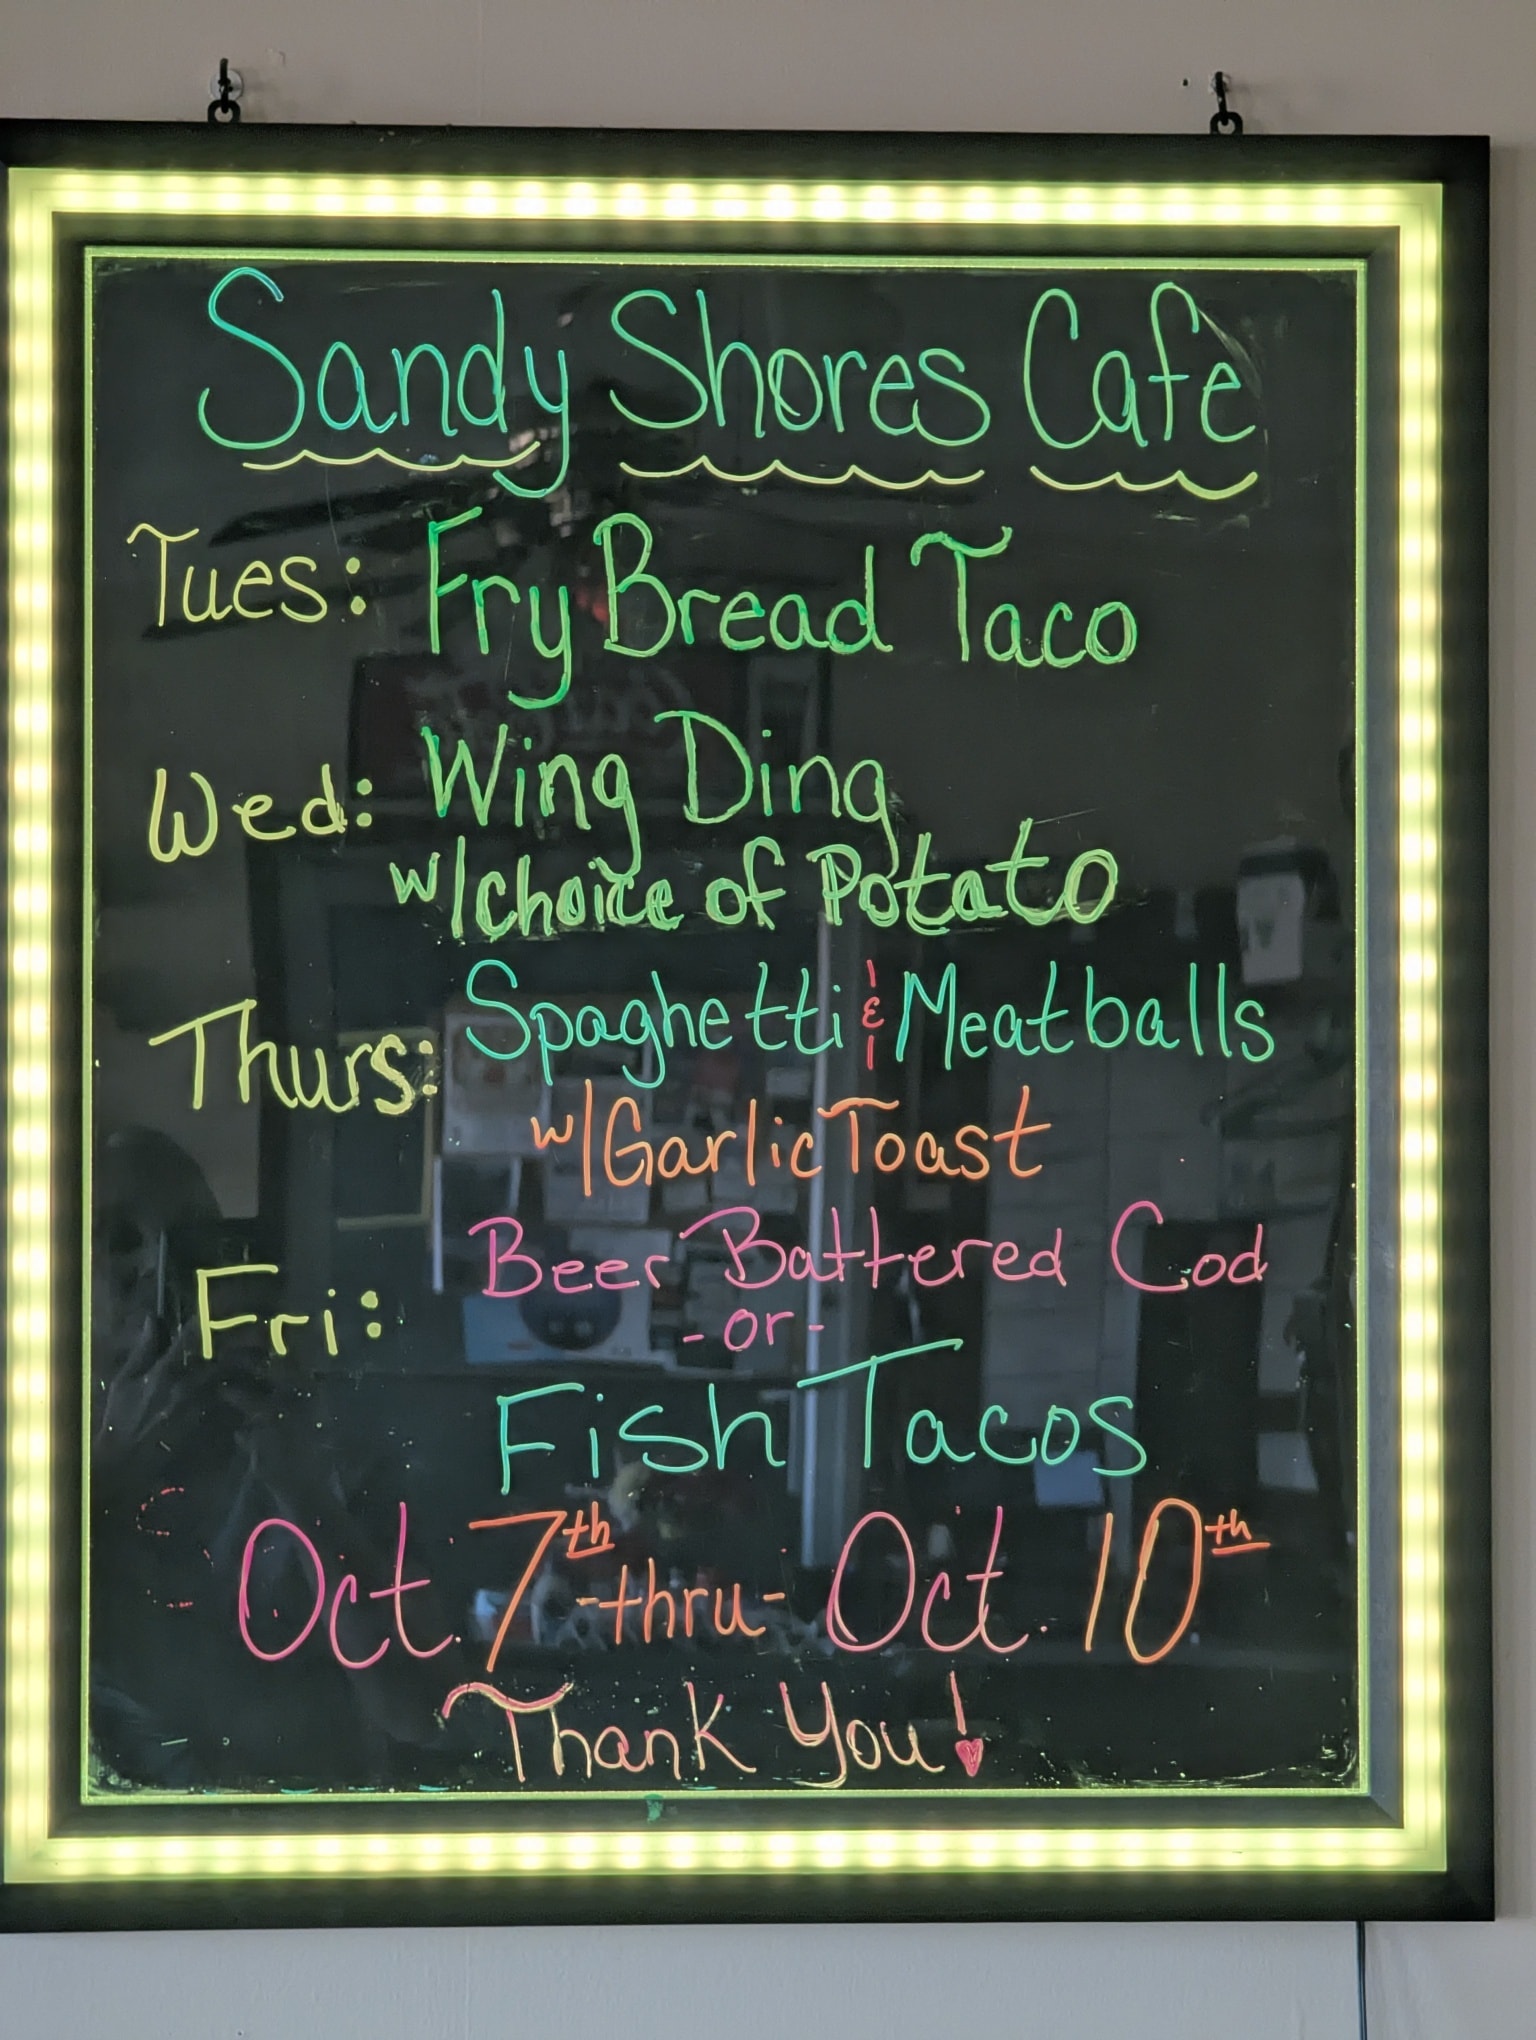 Sandy Shores Cafe
Tues: Fry Bread Taco
Wed: Wing Ding
w/choice of Potato
Thurs: Spaghetti & Meatballs
w/Garlic Toast
Fri: Beer Battered Cod
-or-
Fish Tacos
Oct. 7th -thru- Oct. 10th
Thank You!